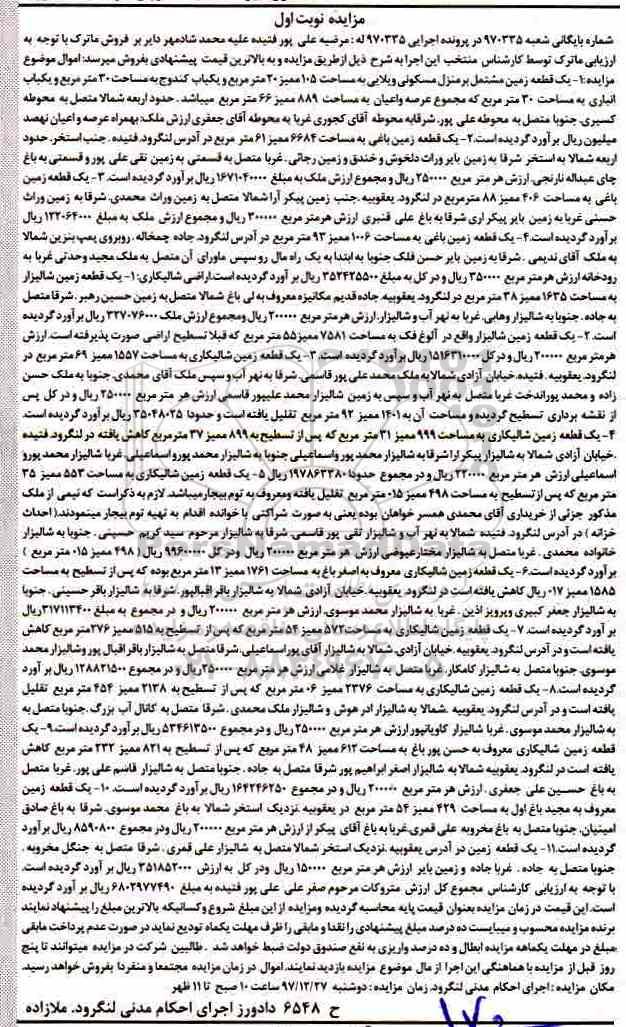 مزایده نوبت اول
شماره بایگانی شعبه ۹۷۰۳۳۵ در پرونده اجرایی ۹۷۰۳۳۵ له : مرضیه علی پور فتیده علیه محمد شادمهر دایر بر فروش ماترک با توجه به
ارزیابی ماترک توسط کارشناس منتخب این اجرا به شرح ذیل از طریق مزایده و به بالاترین قیمت پیشنهادی بفروش میرسد: اموال موضوع
مزایده:۱- یک قطعه زمین مشتمل بر منزل مسکونی ویلایی به مساحت ۱۰۵ ممیز ۲۰ متر مربع و یکباب کندوج به مساحت ۳۰ متر مربع و یکباب
انباری به مساحت ۳۰ متر مربع که مجموع عرصه واعیان به مساحت ۸۸۹ ممیز ۶۶ متر مربع میباشد . حدود اربعه شمالا متصل به محوطه
کسیری. جنوبا متصل به محوطه علی پور. شرقا به محوطه آقای کجوری غربا به محوطه آقای جعفری ارزش ملک: بهمراه عرصه و اعیان نهصد
میلیون ریال برآورد گردیده است.۲- یک قطعه زمین باغی به مساحت ۶۶۸۴ ممیز ۶۱ متر مربع در آدرس لنگرود. فتیده . جنب استخر. حدود
اربعه شمالا به استخر شرقا به زمین بایر وراث دلخوش و خندق و زمین رجائی. غربا متصل به قسمتی به زمین نقی علی پور و قسمتی به باغ
چای عبداله نارنجی. ارزش هر متر مربع ۲۵۰۰۰۰ ریال و مجموع ارزش ملک به مبلغ ۱۶۷۱۰۴۰۰۰۰ ریال برآورد گردیده است. ۳- یک قطعه زمین
باغی به مساحت ۴۰۶ ممیز ۸۸ متر مربع در لنگرود. یعقوبیه .جنب زمین پیکر آرا شمالا متصل به زمین وراث محمدی. شرقا به زمین وراث
حسنی غربا به زمین بایر پیکر اری شرقا به باغ علی قنبری ارزش هر متر مربع ۳۰۰۰۰۰ ریال و مجموع ارزش ملک به مبلغ ۱۲۲۰۶۴۰۰۰ ریال
برآورد گردیده است.۴- یک قطعه زمین باغی به مساحت ۱۰۰۶ ممیز ۹۳ متر مربع در آدرس لنگرود. جاده چمخاله . روبروی پمپ بنزین شمالا
به ملک آقای ندیمی . شرقا به زمین بایر حسن فلک جنوبا به ابتدا به یک راه مال رو سپس ماورای آن متصل به ملک مجید وحدتی غربا به
رودخانه ارزش هر متر مربع ۳۵۰۰۰۰ ریال و در کل به مبلغ ۳۵۲۴۲۵۵۰۰ ریال برآورد گردیده است.اراضی شالیکاری: ۱- یک قطعه زمین شالیزار
به مساحت ۱۶۳۵ ممیز ۳۸ متر مربع در لنگرود. یعقوبیه. جاده قدیم مکانیزه معروف به لی باغ شمالا متصل به زمین حسین رهبر. شرقا متصل
به جاده . جنوبا به شالیزار وهابی. غربا به نهر آب و شالیزار. ارزش هر متر مربع ۲۰۰۰۰۰ ریال و مجموع ارزش ملک ۳۲۷۰۷۶۰۰۰ ریال برآورد گردیده
است. ۲- یک قطعه زمین شالیزار واقع در آلوغ فک به مساحت ۷۵۸۱ ممیز ۵۵ متر مربع که قبلا تسطیح اراضی صورت پذیرفته است. ارزش
هر متر مربع ۲۰۰۰۰۰ ریال و در کل ۱۵۱۶۳۱۰۰۰۰ ریال برآورد گردیده است. ۳- یک قطعه زمین شالیکاری به مساحت ۱۵۵۷ ممیز ۶۹ متر مربع در
لنگرود. یعقوبیه . فتیده. خیابان آزادی شمالا به ملک محمد علی پور قاسمی. شرقا به نهر آب و سپس ملک آقای محمدی. جنوبا به ملک حسن
زاده و محمد پوراندخت غربا متصل به نهر آب و سپس به زمین شالیزار محمد علیپور قاسمی ارزش هر متر مربع ۲۵۰۰۰۰ ریال و در کل پس
از نقشه برداری تسطیح گردیده و مساحت آن به ۱۴۰۱ ممیز ۹۲ متر مربع تقلیل یافته است و حدودا ۳۵۰۴۸۰۲۵ ریال برآورد گردیده است.
۴- یک قطعه زمین شالیکاری به مساحت ۹۹۹ ممیز ۳۱ متر مربع که پس از تسطیح به ۸۹۹ ممیز ۳۷ متر مربع کاهش یافته در لنگرود. فتیده
.خیابان آزادی شمالا به شالیزار پیکر ارا شرقا به شالیزار محمد پور واسماعیلی جنوبا به شالیزار محمد پور و اسماعیلی. غربا شالیزار محمد پور و
اسماعیلی ارزش هر متر مربع ۲۲۰۰۰۰ ریال و در مجموع حدودا ۱۹۷۸۶۳۳۸۰ ریال ۵- یک قطعه زمین شالیکاری به مساحت ۵۵۳ ممیز ۳۵
متر مربع که پس از تسطیح به مساحت ۴۹۸ ممیز ۰۱۵ متر مربع تقلیل یافته ومعروف به توم بیجار میباشد. لازم به ذکر است که نیمی از ملک
مذکور جزئی از خریداری آقای محمدی همسر خواهان بوده یعنی به صورت شراکتی با خوانده اقدام به تهیه توم بیجار مینمودند. ( احداث
خزانه ) در آدرس لنگرود. فتیده شمالا به نهر آب و شالیزار تقی پور قاسمی. شرقا به شالیزار مرحوم سید کریم حسینی . جنوبا به شالیزار
خانواده محمدی . غربا متصل به شالیزار مختار عیوضی ارزش هر متر مربع ۲۰۰۰۰۰ ریال و در کل ۹۹۶۰۰۰۰۰ ریال ( ۴۹۸ ممیز ۰۱۵ متر مربع )
برآورد گردیده است.۶- یک قطعه زمین شالیکاری معروف به اصغر باغ به مساحت ۱۷۶۱ ممیز ۱۳ متر مربع بوده که پس از تسطیح به مساحت
۱۵۸۵ ممیز ۰۱۷ ریال کاهش یافته است در لنگرود. یعقوبیه. خیابان آزادی شمالا به شالیزار باقر اقبالپور. شرقا به شالیزار باقر حسینی . جنوبا
به شالیزار جعفر کبیری و پرویز اذین . غربا به شالیزار محمد موسوی. ارزش هر متر مربع ۲۰۰۰۰۰ ریال و در مجموع به مبلغ ۳۱۷۱۱۳۴۰۰ ریال
بر آورد گردیده است. ۷- یک قطعه زمین شالیکاری به مساحت ۵۷۲ ممیز ۵۴ متر مربع که پس از تسطیح به ۵۱۵ ممیز ۲۷۶ متر مربع کاهش
یافته است و در آدرس لنگرود. یعقوبیه. خیابان آزادی. شمالا به شالیزار آقای پور اسماعیلی. شرقا متصل به شالیزار باقر اقبال پور و شالیزار محمد
موسوی. جنوبا متصل به شالیزار کامکار. غربا متصل به شالیزار غلامی ارزش هر متر مربع ۲۵۰۰۰۰ ریال و در مجموع ۱۲۸۸۲۱۵۰۰ ریال بر آورد
گردیده است.۸- یک قطعه زمین شالیکاری به مساحت ۲۳۷۶ ممیز ۰۶ متر مربع که پس از تسطیح به ۲۱۳۸ ممیز ۴۵۴ متر مربع تقلیل
یافته است و در آدرس لنگرود. یعقوبیه .شمالا به شالیزار ادر هوش و شالیزار ملک محمدی . شرقا متصل به کانال آب بزرگ. جنوبا متصل به
به شالیزار محمد موسوی. غربا شالیزار کاویانپور ارزش هر متر مربع ۲۵۰۰۰۰ ریال و در مجموع ۵۳۴۶۱۳۵۰۰ ریال برآورد گردیده است.۹- یک
قطعه زمین شالیکاری معروف به حسن پور باغ به مساحت ۶۱۲ ممیز ۴۸ متر مربع که پس از تسطیح به ۸۲۱ ممیز ۲۳۲ متر مربع کاهش
یافته است در لنگرود. یعقوبیه شمالا به شالیزار اصغر ابراهیم پور شرقا متصل به جاده . جنوبا متصل به شالیزار قاسم علی پور. غربا متصل
به باغ حسین علی جعفری . ارزش هر متر مربع ۲۰۰۰۰۰ ریال و در مجموع ۱۶۴۲۴۶۲۵۰ ریال برآورد گردیده است. ۱۰- یک قطعه زمین
معروف به مجید باغ اول به مساحت ۴۲۹ ممیز ۵۴ متر مربع در یعقوبیه .نزدیک استخر شمالا به باغ محمد موسوی. شرقا به باغ صادق
امینیان. جنوبا متصل به باغ مخروبه علی قمری. غربا به باغ آقای پیکر از ارزش هر متر مربع ۲۰۰۰۰۰ ریال ودر مجموع ۸۵۹۰۸۰۰۰ ریال برآورد
گردیده است.۱۱- یک قطعه زمین در آدرس یعقوبیه .نزدیک استخر شمالا متصل به شالیزار علی قمری . شرقا متصل به جنگل مخروبه .
جنوبا متصل به جاده . غربا جاده و زمین بایر ارزش هر متر مربع ۱۵۰۰۰۰ ریال ودر کل به ارزش ۳۵۱۸۵۲۰۰۰ ریال برآورد گردیده است.
با توجه به ارزیابی کارشناس مجموع کل ارزش متروکات مرحوم صفر علی علی پور فتیده به مبلغ ۶۸۰۲۹۷۷۴۹۰ ریال بر آورد گردیده
است. این قیمت در زمان مزایده بعنوان قیمت پایه محاسبه گردیده ومزایده از این مبلغ شروع و کسانیکه بالاترین مبلغ را پیشنهاد نمایند
برنده مزایده محسوب و میبایست ده درصد مبلغ پیشنهادی را نقدا و مابقی را ظرف مهلت یکماه تودیع نماید در صورت عدم پرداخت مابقی
مبلغ در مهلت یکماهه مزایده ابطال و ده درصد واریزی به نفع صندوق دولت ضبط خواهد شد . طالبین شرکت در مزایده میتوانند تا پنج
روز قبل از مزایده با هماهنگی این اجرا از مال موضوع مزایده بازدید نمایند. اموال در زمان مزایده مجتمعا و منفردا بفروش خواهد رسید.
مکان مزایده : اجرای احکام مدنی لنگرود. زمان مزایده : دوشنبه ۹۷/۱۲/۲۷ ساعت ۱۰ صبح تا ۱۱ ظهر
ح ۶۵۴۸ دادورز اجرای احکام مدنی لنگرود. ملازاده